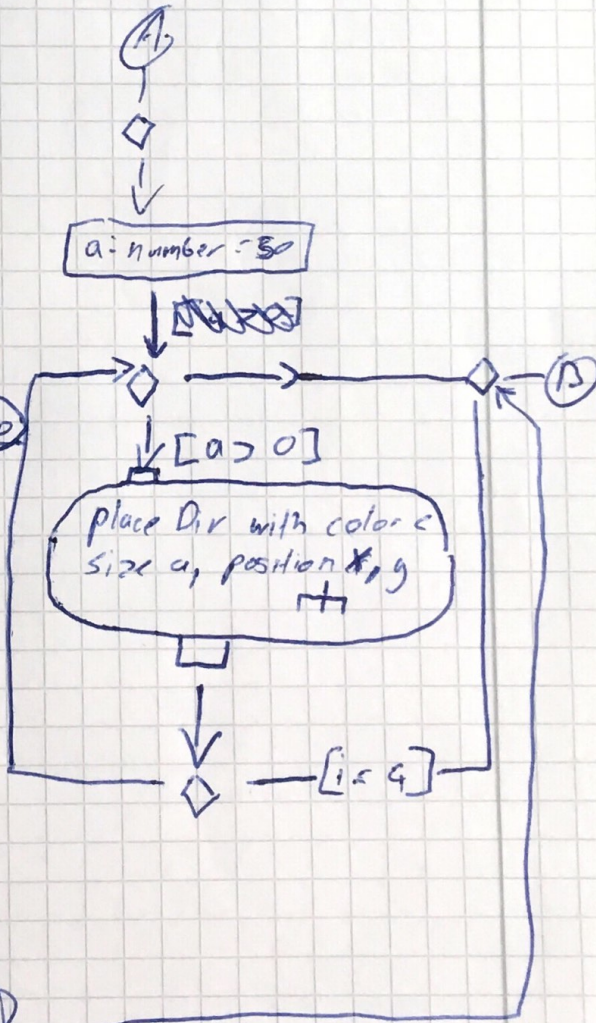 A
a: number = 50
B
[a > 0]
place Div with color c
size a, position x, y
[i = 4]